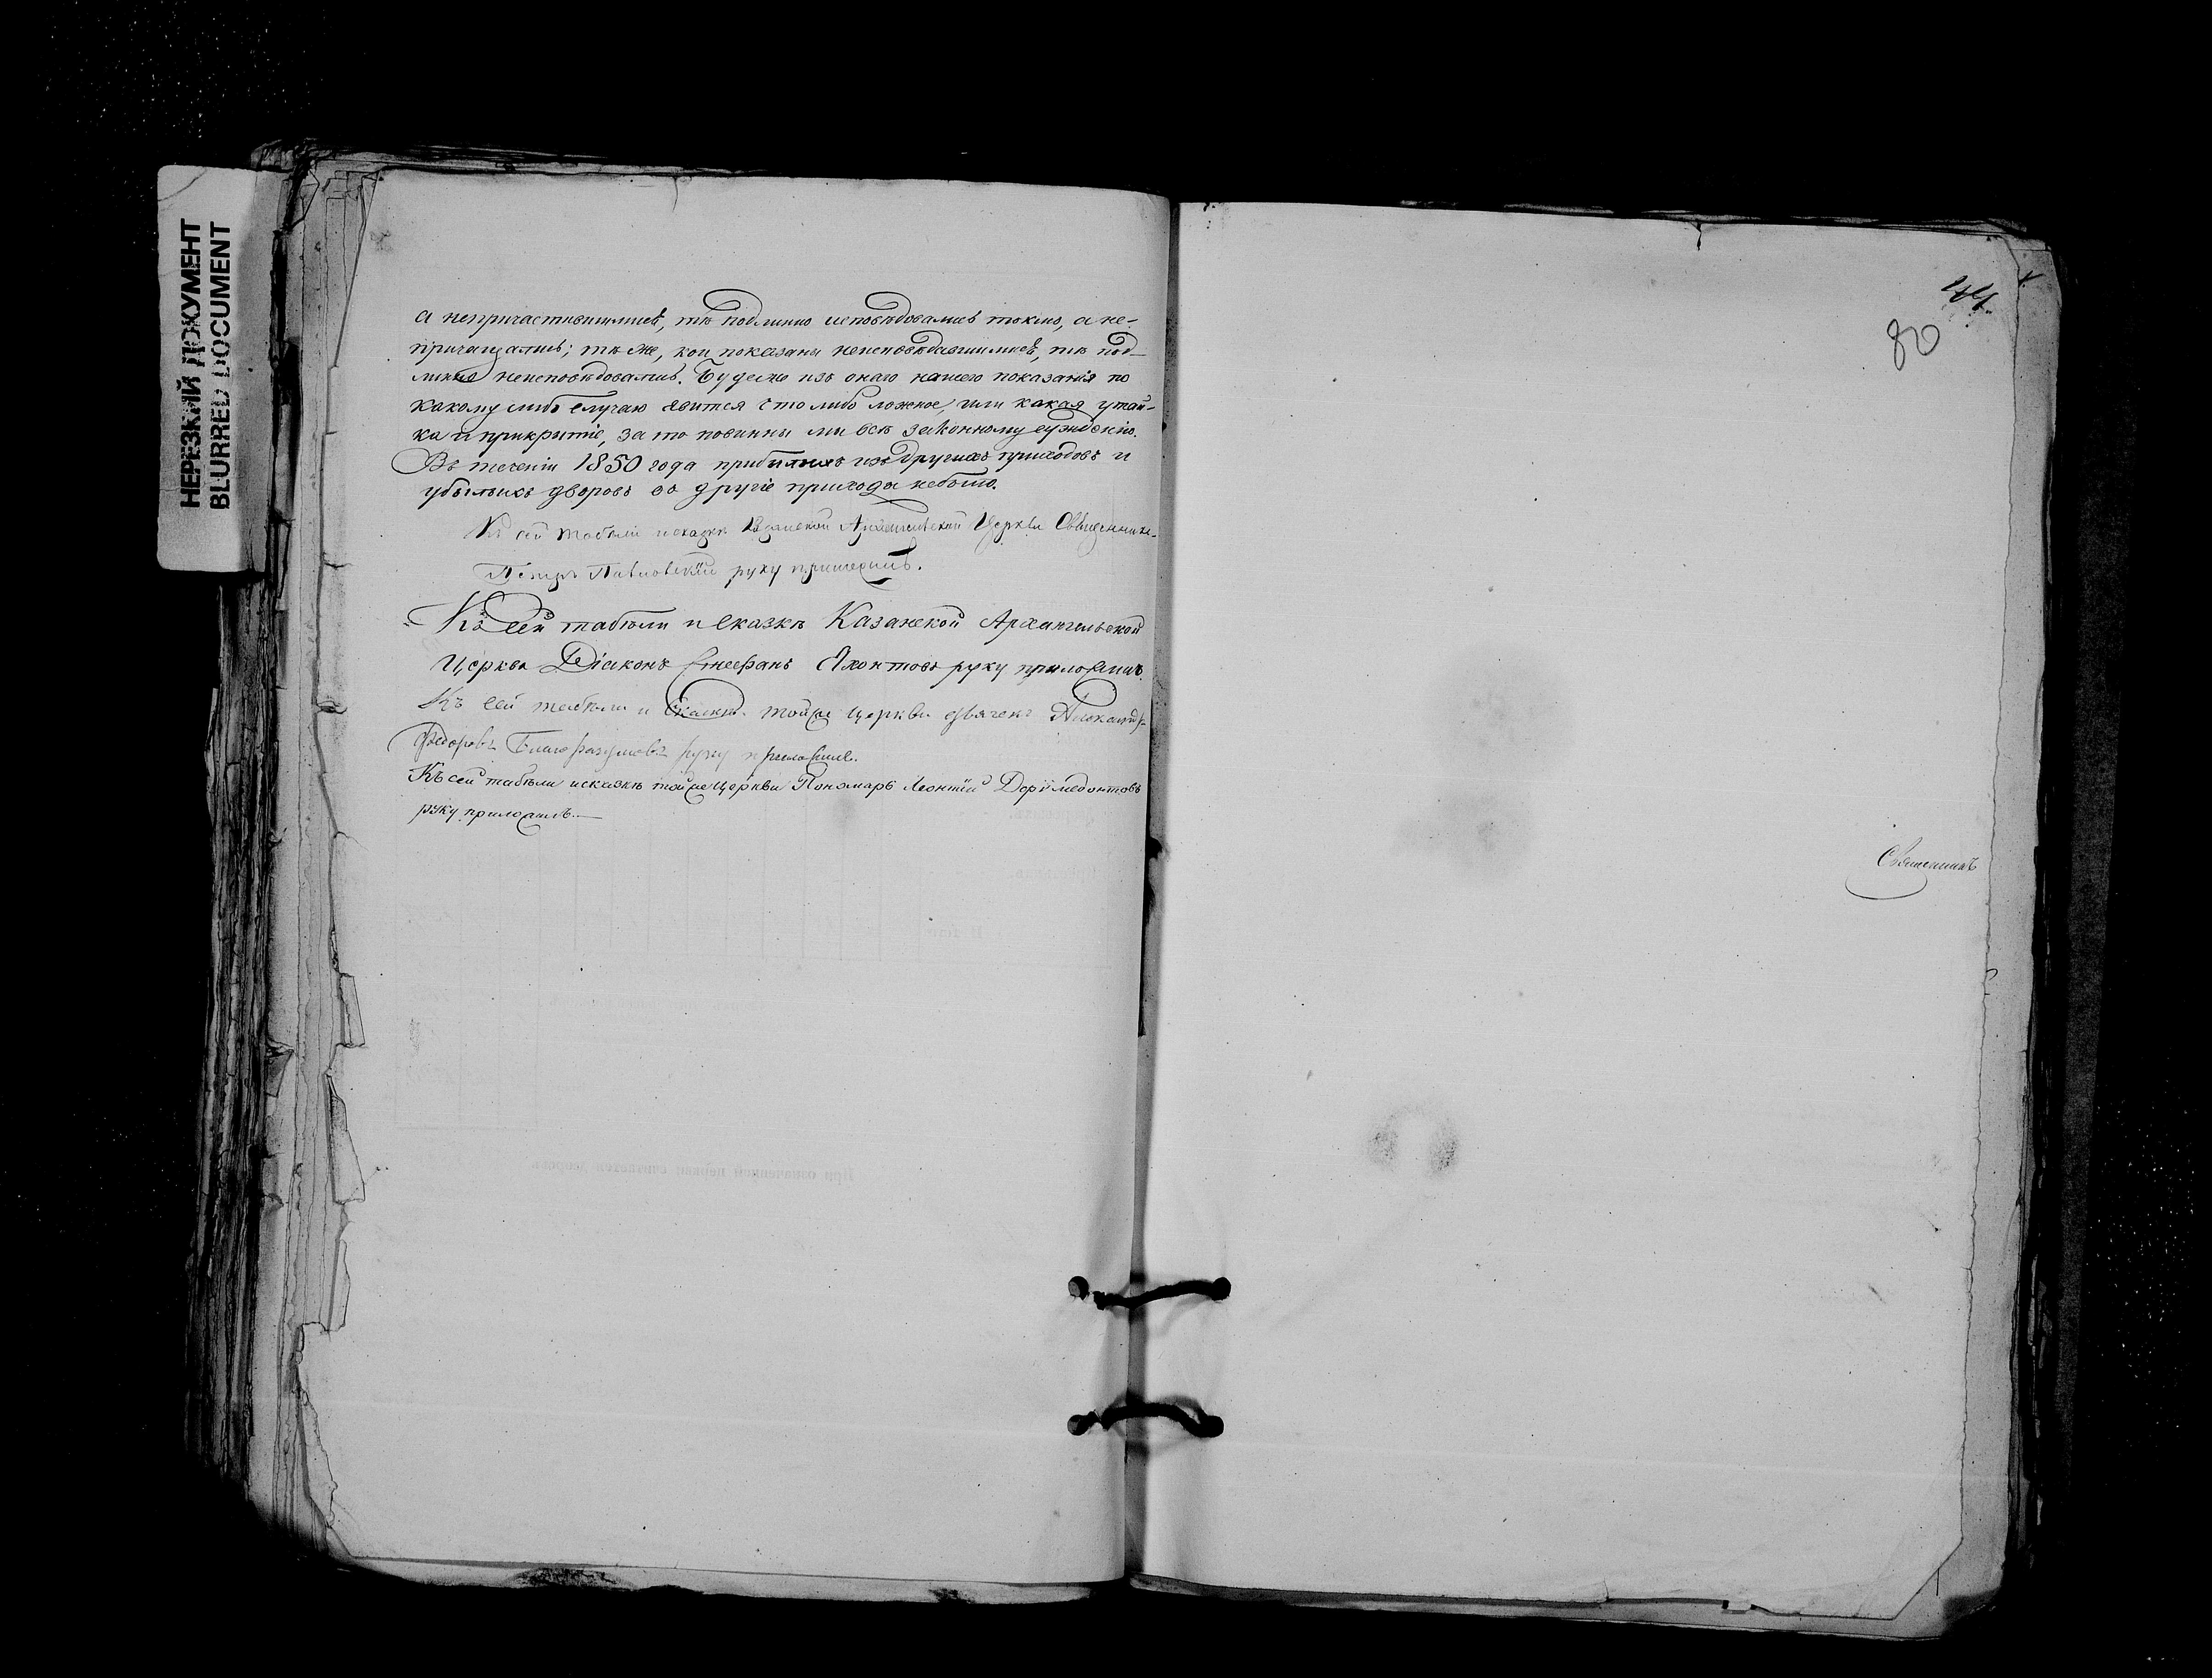 НЕРЕЗКИЙ ДОКУМЕНТ
BLURRED DOCUMENT
а непричастившимися, тѣ подлинно исповѣдовались токмо, а не-
причащались; тѣ же, кои показаны неисповѣдавшимися, тѣ под-
линно неисповѣдовались. Будеже изъ онаго нашего показанія по
какому либо случаю явится что либо ложное, или какая утай-
ка и прикрытіе, за то повинны мы всѣ законному сужденію.
Въ теченіи 1850 года прибылыхъ изъ другихъ приходовъ и
убылыхъ дворовъ въ другіе прихода небыло.
Къ сей табели и сказкѣ Казанской Архангельской Церкви Священникъ
Петръ Павловскій руку приложилъ.
Къ сей табѣли и сказкѣ Казанской Архангельской
Церкви Діаконъ Стефанъ Яхонтовъ руку приложилъ.
Къ сей табѣли и сказкѣ тойже церкви дьячекъ Александръ
Федоровъ Благоразумовъ руку приложилъ.
Къ сей табѣли и сказкѣ тойже церкви Пономарь Леонтій Доримедонтовъ
руку приложилъ.
44.
80
Священникъ
При означенной церкви имѣется дворовъ